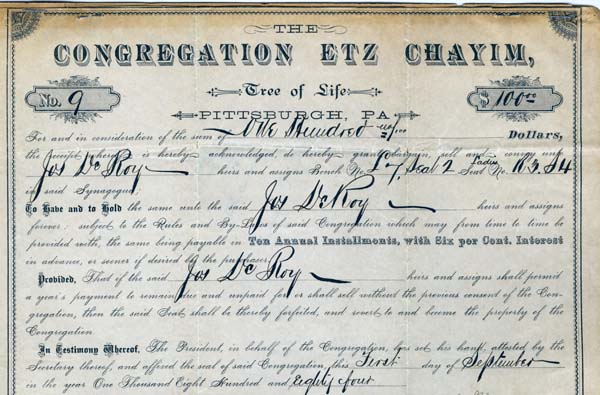 THE
CONGREGATION ETZ CHAYIM,
Tree of Life
PITTSBURGH, PA.
No. 9
$ 100.00
For and in consideration of the sum of One Hundred no/100 Dollars,
the receipt whereof is hereby acknowledged, do hereby grant, bargain, sell and convey unto
Jos De Roy heirs and assigns Bench No. Seat 2 Ladies Seat No.
in said Synagogue
To Have and to Hold the same unto the said Jos De Roy heirs and assigns
forever: subject to the Rules and By-Laws of said Congregation which may from time to time be
provided with, the same being payable in Ten Annual Installments, with Six per Cent. Interest
in advance, or sooner if desired by the purchaser.
Provided, That if the said Jos De Roy heirs and assigns shall permit
a year's payment to remain due and unpaid for or shall sell without the previous consent of the Con-
gregation, then the said Seat shall be thereby forfeited, and revert to and become the property of the
Congregation.
In Testimony Whereof, The President, in behalf of the Congregation, has set his hand, attested by the
Secretary thereof, and affixed the seal of said Congregation, this First day of September
in the year One Thousand Eight Hundred and Eighty four